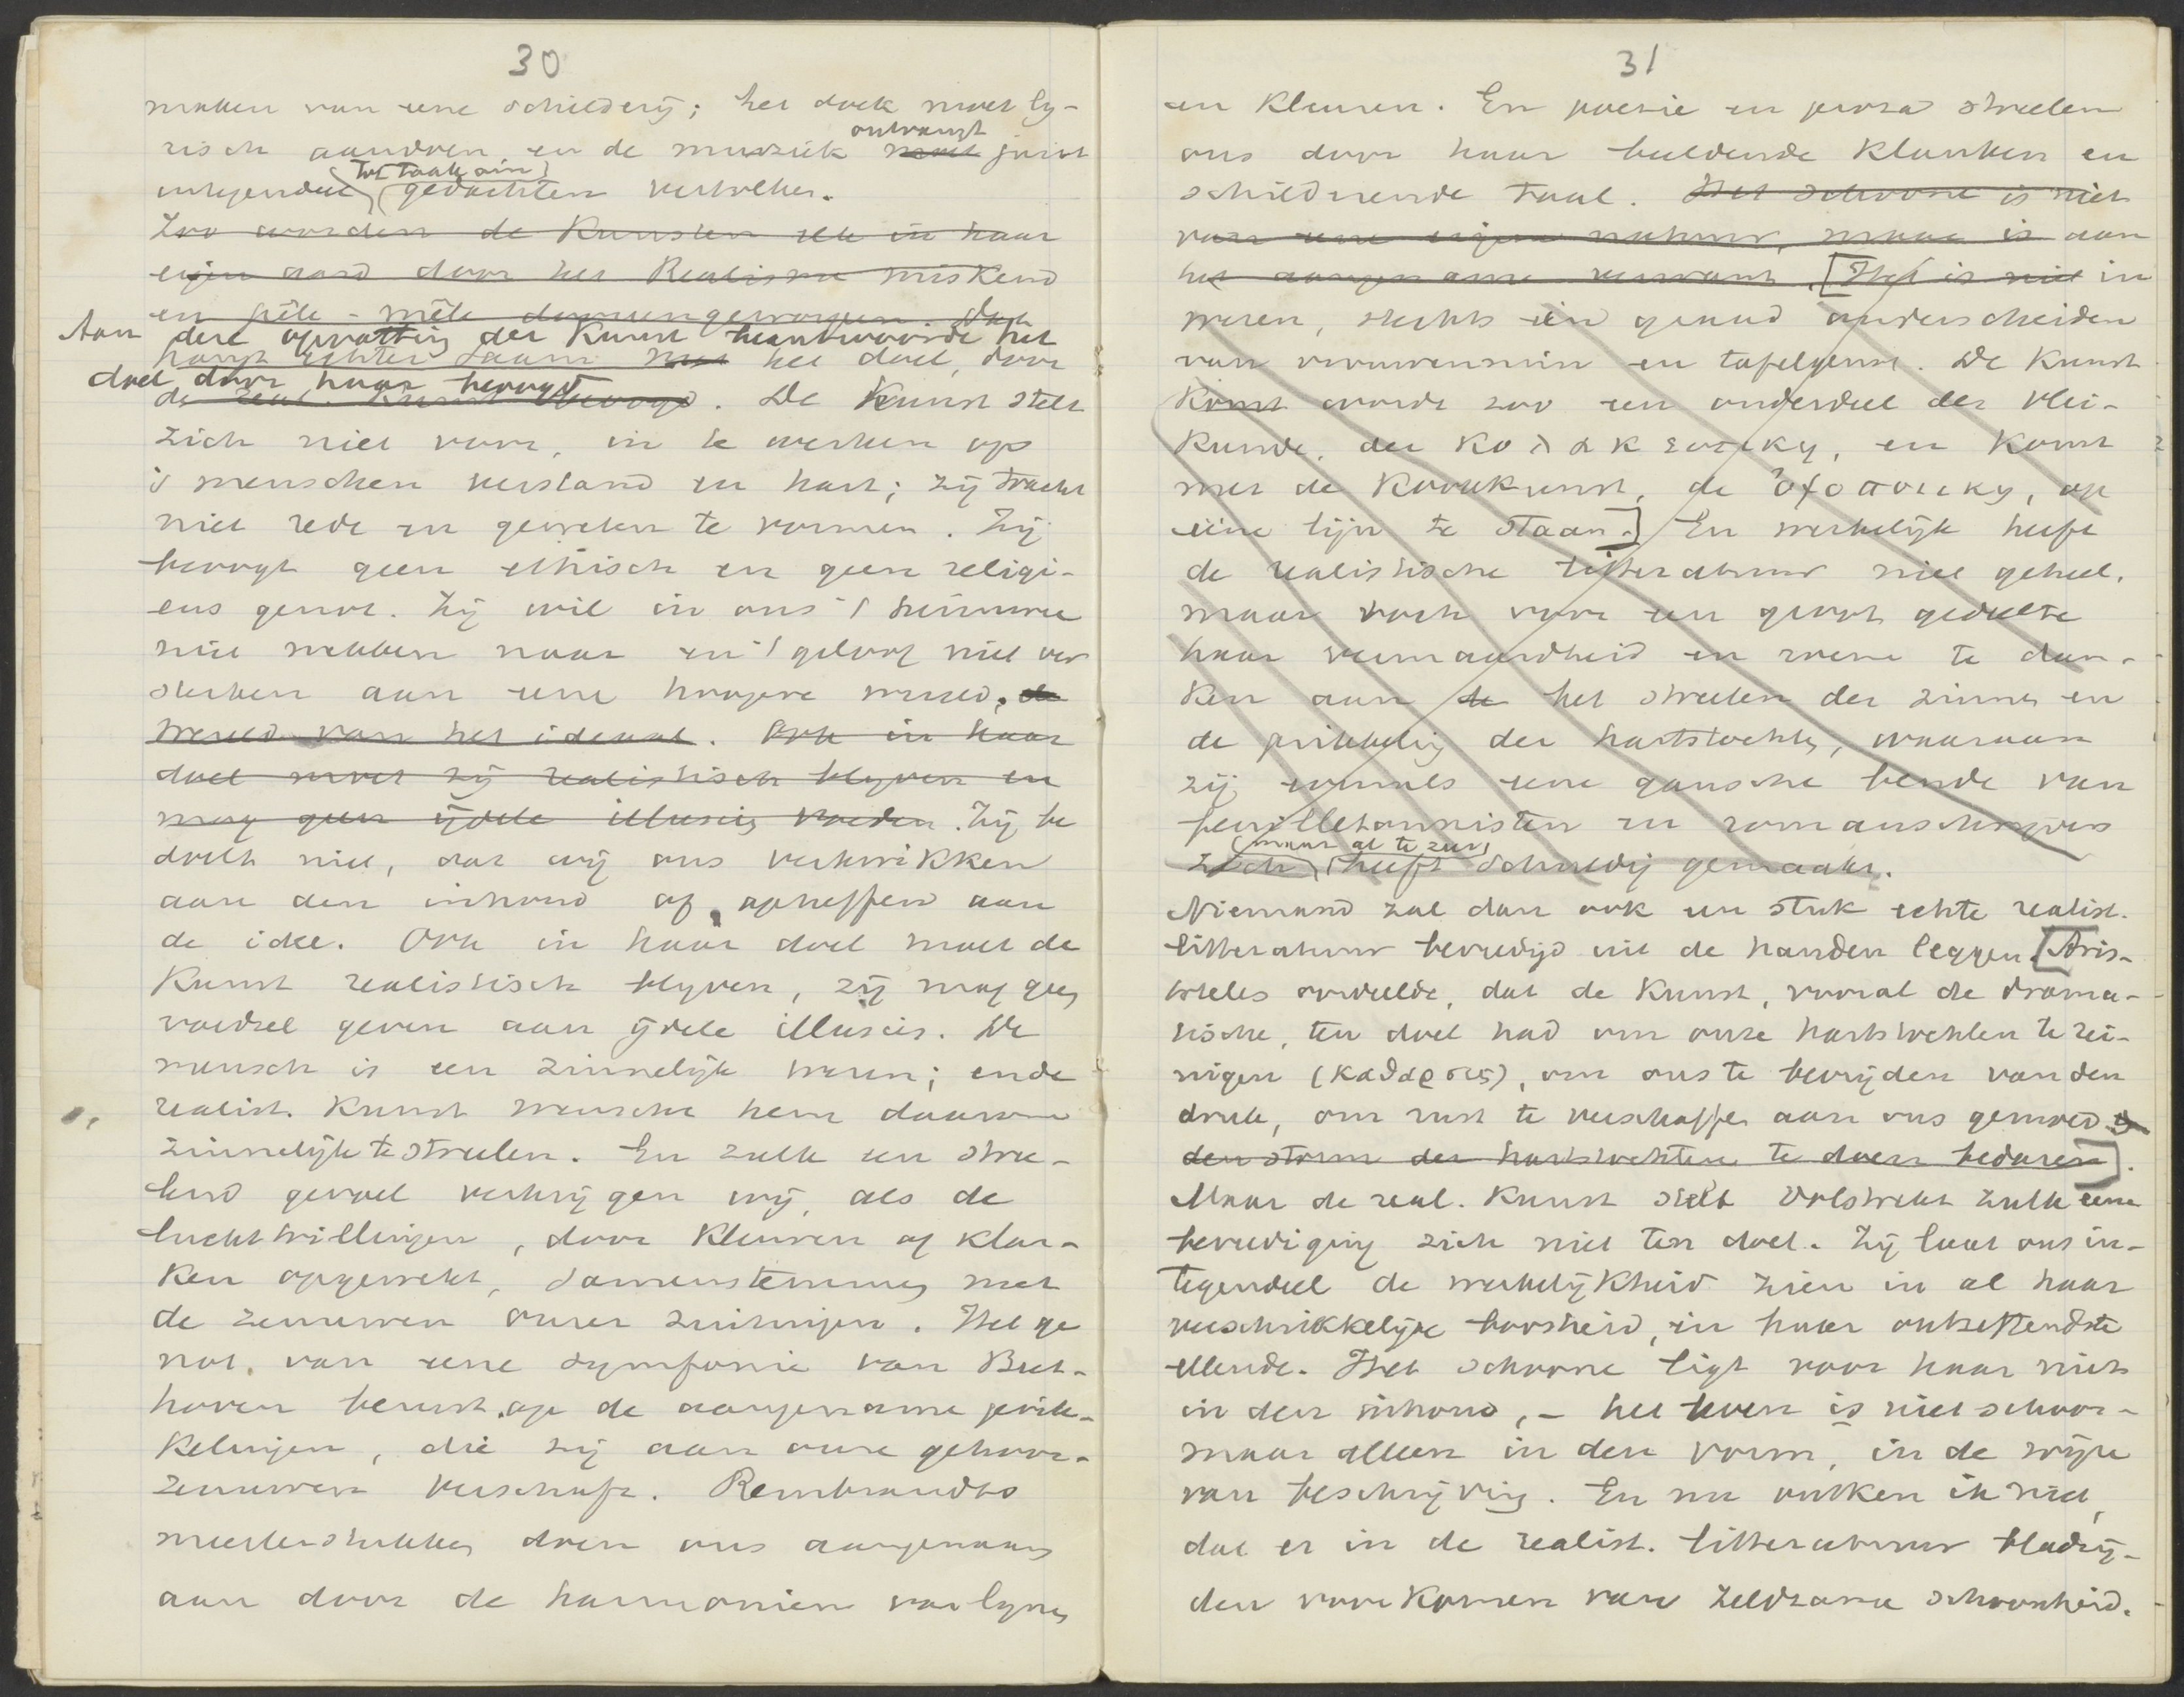 30
maken van eene schilderij; het doek moet ly-
risch aandoen en de muziek moet ontvangt juist
integendeel tot taak om gedachten vertolken.
Zoo worden de Kunsten elk in haar
eigen aard door het Realisme miskend
en pêle-mêle dooreengeworpen. Dat
Aan deze opvatting der Kunst beantwoordt het
hangt echter saam met het doel, door
doel, door haar beoogd
de real. Kunst beoogd. De Kunst stelt
zich niet voor, in te werken op
's menschen verstand en hart; zij tracht
niet rede en geweten te vormen. Zij
beoogt geen ethisch en geen religi-
eus genot. Zij wil in ons 't heimwee
niet wekken naar en 't geloof niet ver
sterken aan eene hoogere wereld, de
wereld van het ideaal. Ook in haar
doel moet zij realistisch blyven en
mag geen ijdele illusies voeden. Zij be
doelt niet, dat wij ons verkwikken
aan den inhoud of opheffen aan
de idee. Ook in haar doel moet de
Kunst realistisch blyven, zij mag geen
voedsel geven aan ijdele illusies. De
mensch is een zinnelijk wezen; en de
realist. Kunst wensche hem daarom
zinnelijk te streelen. En zulk een stree-
lend gevoel verkrijgen wij, als de
luchttrillingen, door Kleuren of klan-
ken opgewekt, samenstemmen met
de zenuwen onzer zintuigen. Het ge
not van eene symfonie van Beet-
hoven berust op de aangename prik-
kelingen, die zij aan onze gehoor-
zenuwen verschaft. Rembrandts
meesterstukken doen ons aangenaam
aan door de harmonieën van lynen
31
en Kleuren. En poezie en proza streelen
ons door haar beeldende Klanken en
schilderende taal. Het schoone is niet
van eene eigen natuur, maar is aan
het aangename verwant. [Het is niet in
wezen, slechts in graad onderscheiden
van vrouwenmin en tafelgenot. De Kunst
Komt worde zoo een onderdeel der vlei-
kunde, der κολακευτικη, en Komt
met de Kookkunst, de ὀψοποιικη, op
eene lijn te staan.] En werkelijk heeft
de realistische litteratuur niet geheel,
maar toch voor een groot gedeelte
haar vermaardheid en roem te dan-
ken aan de het streelen der zinnen en
de prikkeling der hartstochten, waaraan
zij immers eene gansche bende van
feuilletonnisten en romanschrijvers
zich (maar al te zeer) heeft schuldig gemaakt.
Niemand zal dan ook een stuk echte realist.
litteratuur bevredigd uit de handen leggen. [Aris-
toteles oordeelde, dat de Kunst, vooral de drama-
tische, ten doel had om onze hartstochten te rei-
nigen (καθαρσις), om ons te bevrijden van den
druk, om rust te verschaffen aan ons gemoed
den storm der hartstochten te doen bedaren].
Maar de real. Kunst stelt volstrekt zulk eene
bevrediging zich niet ten doel. Zij laat ons in-
tegendeel de werkelijkheid zien in al haar
verschrikkelijke boosheid, in haar ontzettendste
ellende. Het schoone ligt voor haar niet
in den inhoud, - het leven is niet schoon -
maar alleen in den vorm, in de wijze
van beschrijving. En nu ontken ik niet,
dat er in de realist. litteratuur bladzij-
den voorkomen van zeldzame schoonheid.